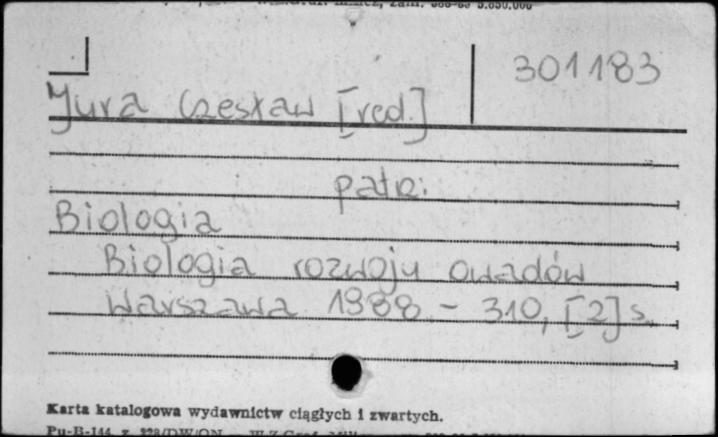 301183
Jura Czesław [red.]
patrz:
Biologia
Biologia rozwoju owadów
Warszawa 1988 - 310, [2] s.
Karta katalogowa wydawnictw ciągłych i zwartych.